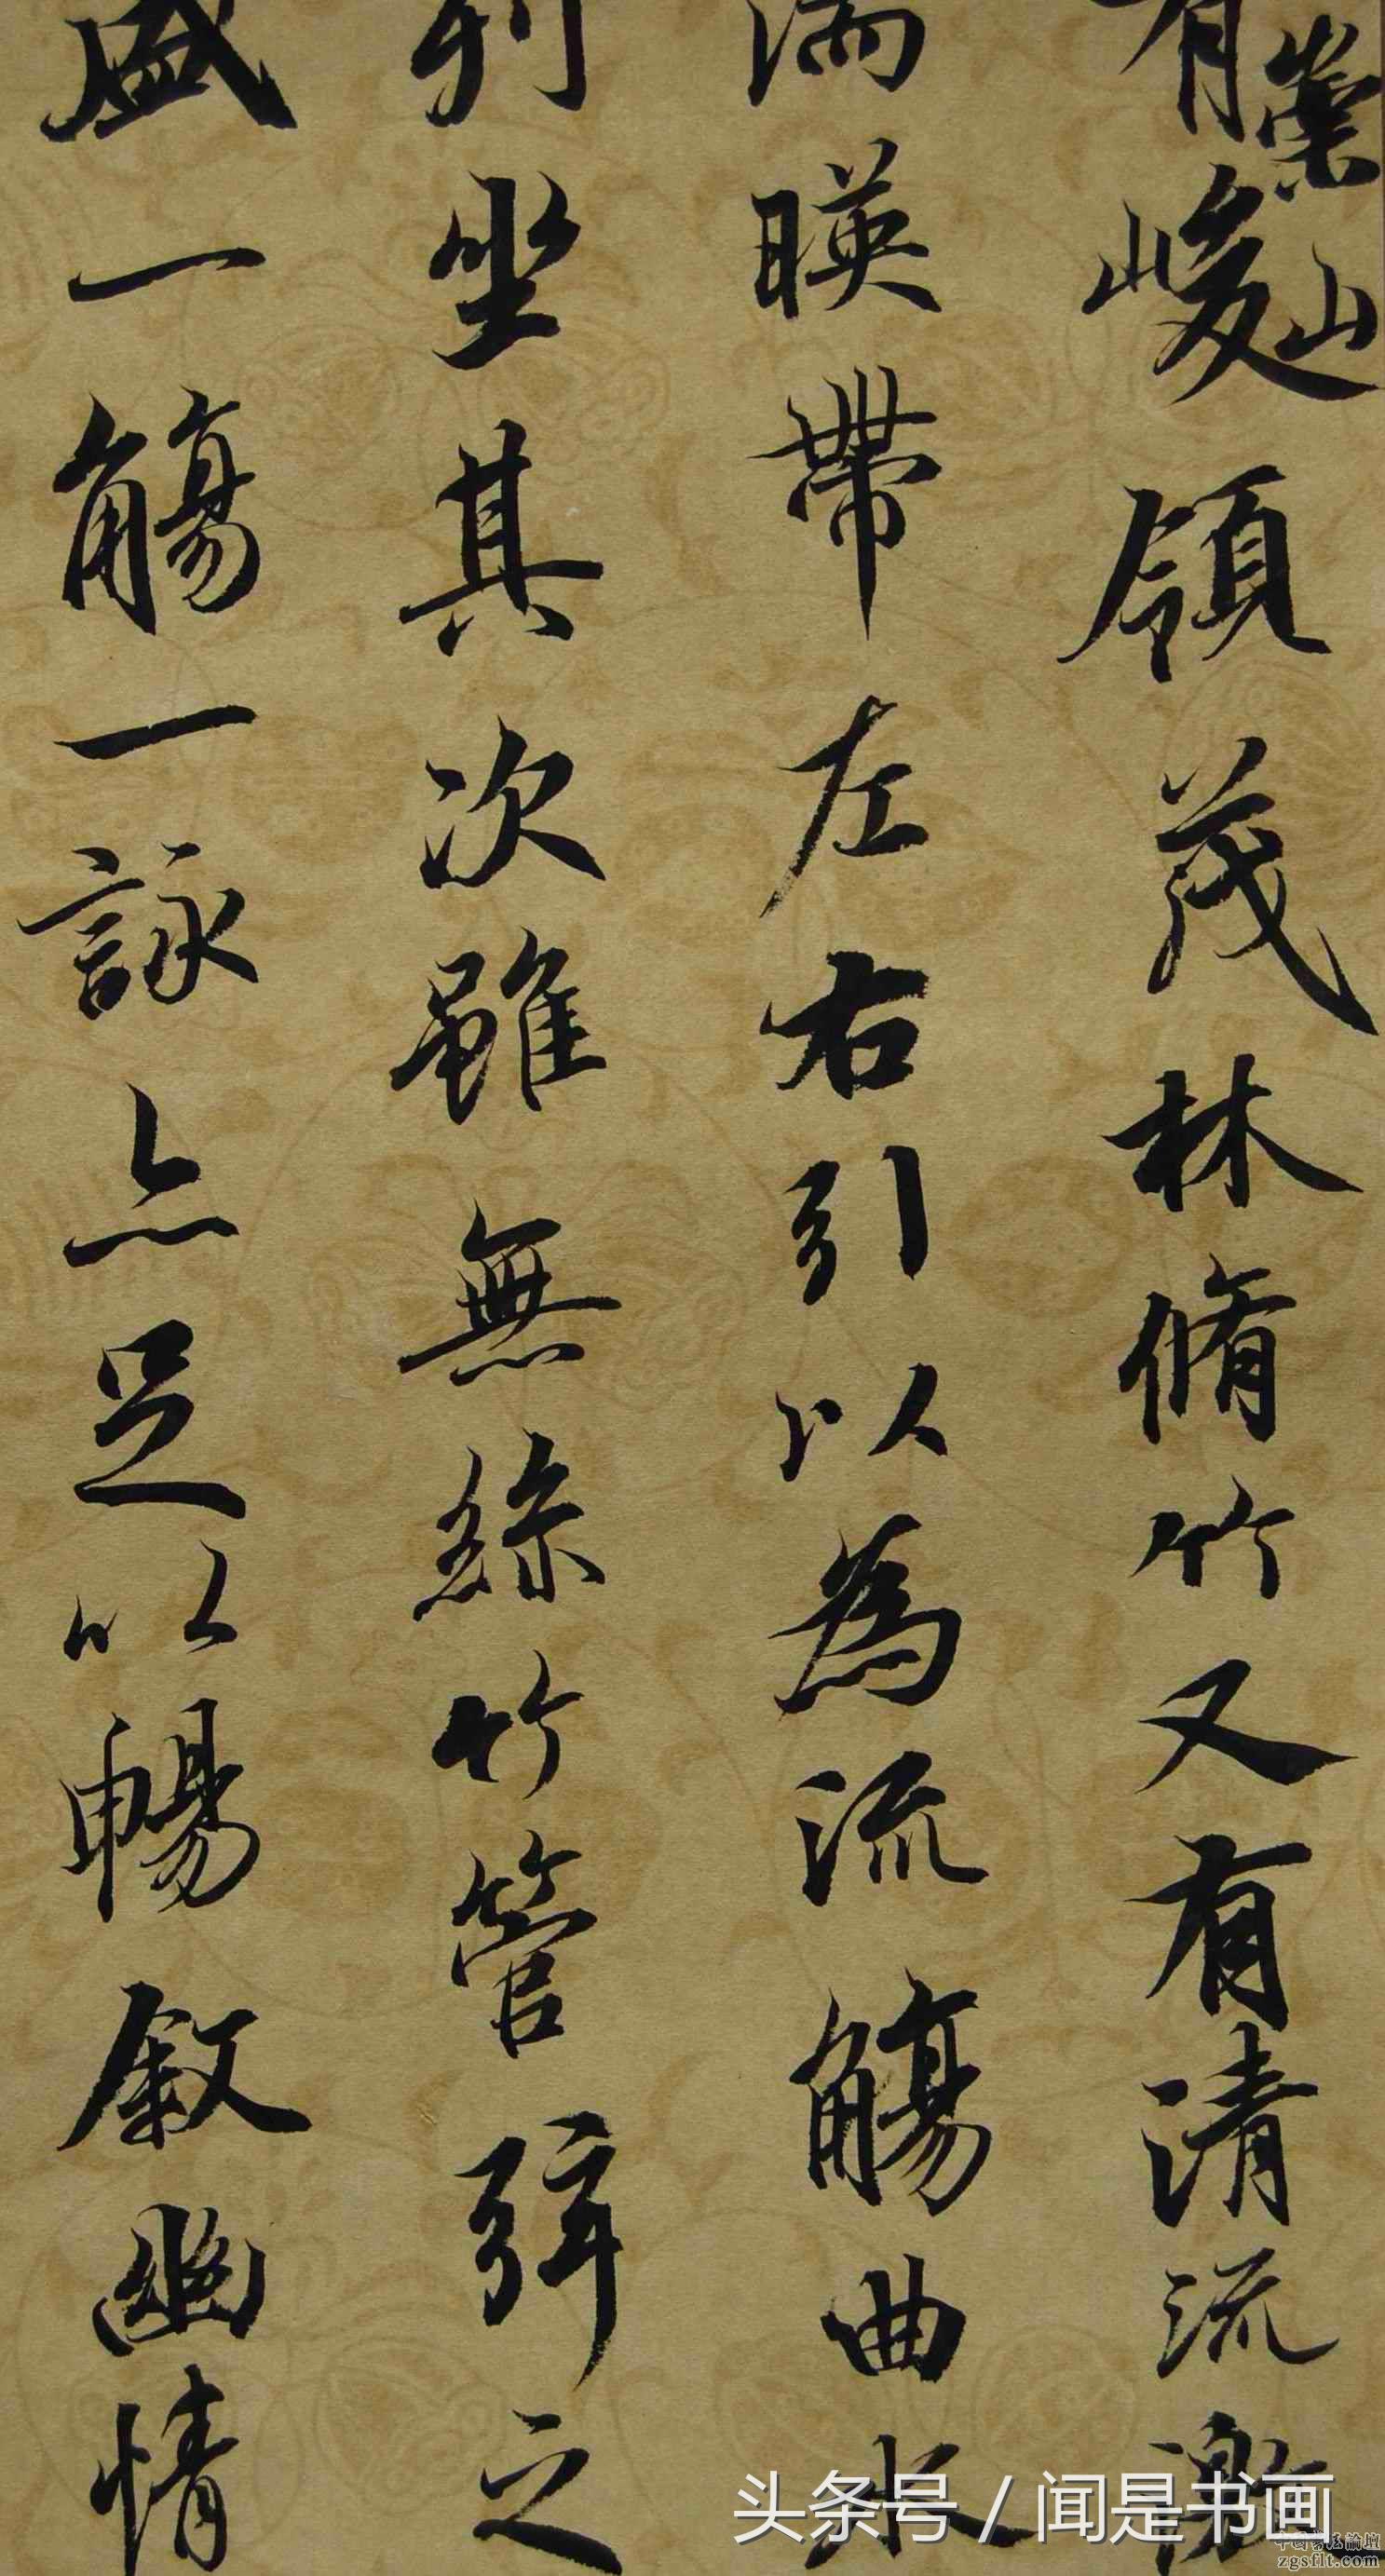 有崇山
峻領茂林脩竹又有清流激
湍暎帶左右引以為流觴曲水
列坐其次雖無絲竹管弦之
盛一觴一詠亦足以暢敘幽情
头条号 / 闻是书画
中国书法論壇
zgsflt.com